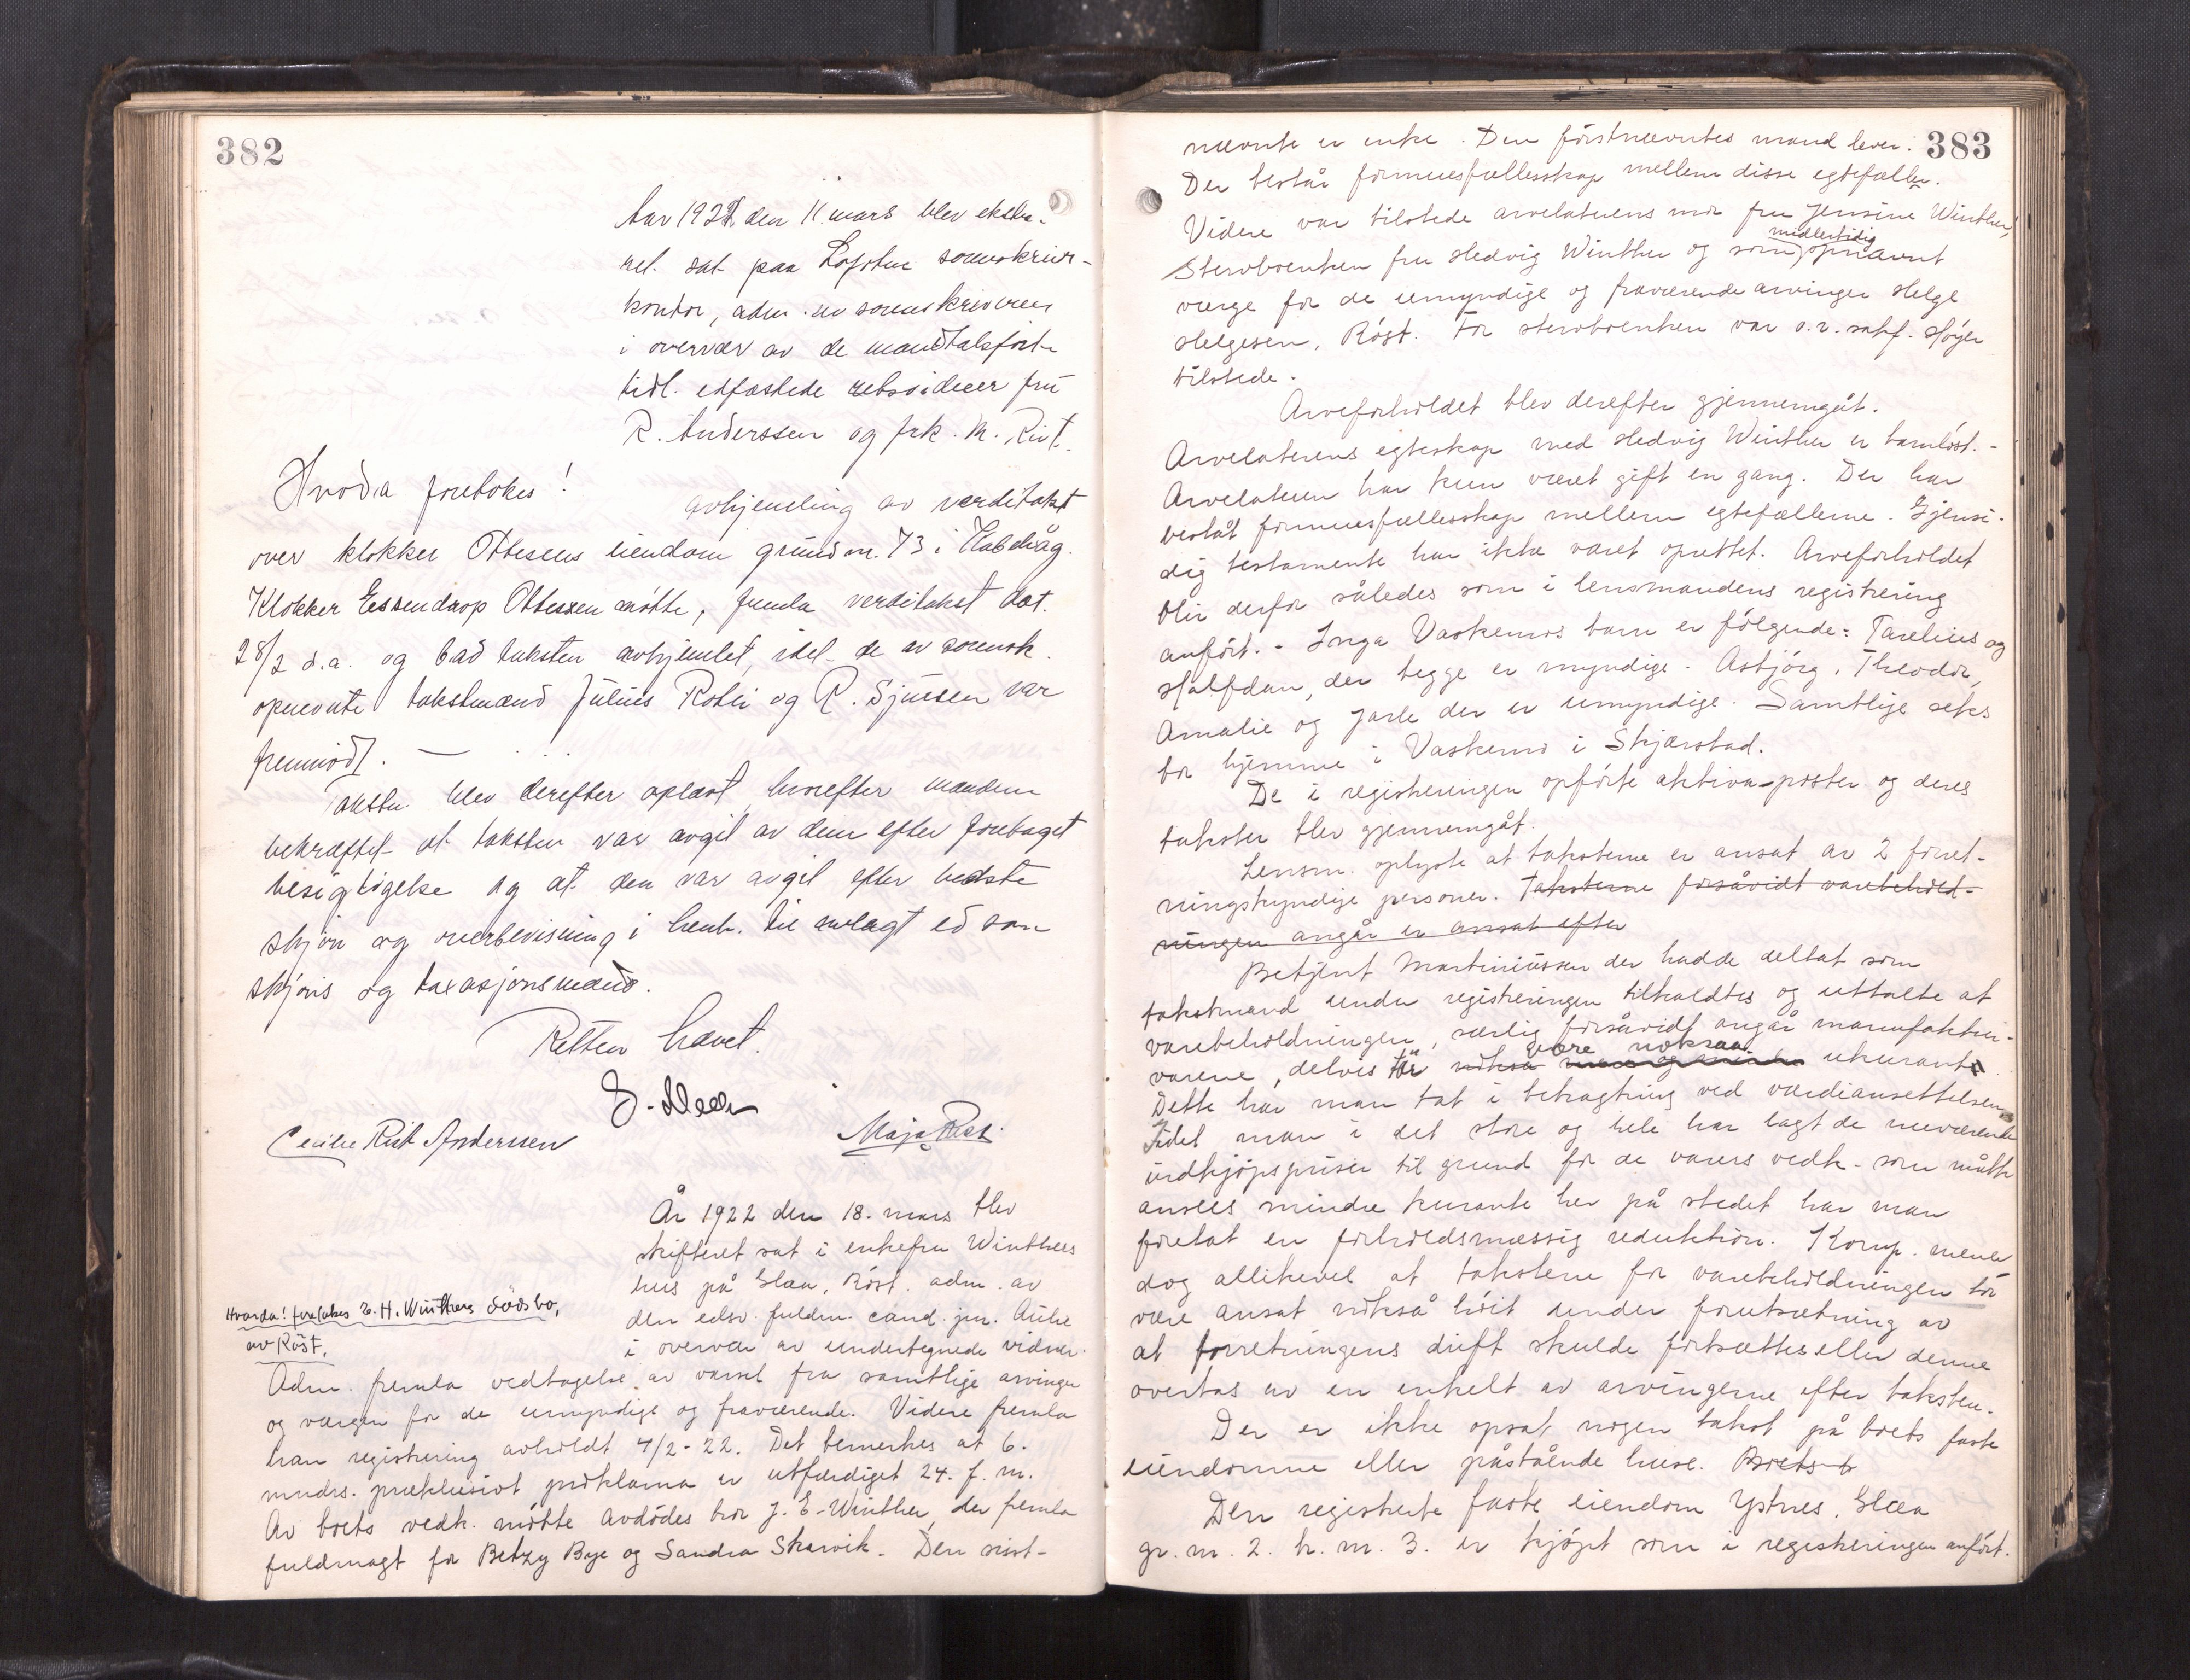 382
Aar 1922 den 11. mars blev ekstra-
ret. sat paa Lofoten sorenskriver-
kontor, adm. av sorenskriveren
i overvær av de mandtalsførte
tidl. edfæstede retsvidner fru
R. Anderssen og frk. M. Rist.
Hvoda foretokes!
avhjemling av verditakst
over klokker Ottesens eiendom grundnr. 73 i Kabelvåg.
Klokker Essendrop Ottesen møtte, fremla verditakst dat.
28/2 d.a. og bad taksten avhjemlet, idet de av sorensk.
opnevnte takstmænd Julius Robli og R. Sjursen var
fremmødt. —
Taksten blev derefter oplæst, hvorefter mændene
bekræftet at taksten var avgit av dem efter foretaget
besigtigelse og at den var avgit efter bedste
skjøn og overbevisning i henh. til avlagt ed som
skjøns og taxasjonsmænd.
Retten hævet.
Cecilie Rist Anderssen
Maja Rist.
År 1922 den 18. mars blev
skifteret sat i enkefru Winthers
hus på Glea, Røst. adm. av
den edsv. fuldm. cand. jur. Aulie
i overvær av undertegnede vidner.
Hvorda! foretokes E. H. Winthers dödsbo,
av Röst.
Adm. fremla vedtagelse av varsel fra samtlige arvinger
og vergen for de umyndige og fraværende. Videre fremla
han registrering avholdt 4/2-22. Det bemerkes at 6.
mndrs. præklusivt proklama er utfærdiget 24. f. m.
Av boets vedk. møtte avdødes bror J. E. Winther, der fremla
fuldmagt for Betzy Bye og Sandra Skarvik. Den sist-
383
nævnte er enke. Den førstnævntes mand lever.
Der består formuesfællesskap mellem disse egtefæller.
Videre var tilstede arvelaterens mor fru Jensine Winther,
Stervboenken fru Hedvig Winther og som midlertidig opnævnt
værge for de umyndige og fraværende arvinger Helge
Helgesen, Røst. For stervboenken var o.r.sakf. Høyer
tilstede.
Arveforholdet blev derefter gjennemgåt.
Arvelaterens egteskap med Hedvig Winther er barnløst. -
Arvelateren har kun været gift en gang. Der har
bestått formuesfællesskap mellem egtefællerne. Gjensi-
dig testamente har ikke været oprettet. Arveforholdet
blir derfor således som i lensmandens registrering
anført. - Inga Vaskemos barn er følgende: Tarelius og
Halfdan, der begge er myndige. Asbjørg, Theodor,
Amalie og Jarle der er umyndige. Samtlige seks
bor hjemme i Vaskemo i Skjærstad.
De i registreringen opførte aktiva-poster og deres
takster blev gjennemgåt.
Lensm. oplyste at taksterne er ansat av 2 forret-
ningskyndige personer. Taksterne forsåvidt varebehold-
ningen angår er ansat efter
Betjent Martiniussen der hadde deltat som
takstmand under registreringen tilkaldtes og uttalte at
varebeholdningen, særlig forsåvidt angår manufaktur-
varene, delvis tør være noksaa ukurant.
Dette har man tat i betragtning ved værdiansettelsen,
idet man i det store og hele har lagt de nuværende
indkjøpspriser til grund for de varers vedk. som måtte
ansees mindre kurante her på stedet har man
foretat en forholdsmæssig reduktion. Komp. mener
dog allikevel at taksterne for varebeholdningen tør
være ansat nokså høit under forutsætning av
at forretningens drift skulde fortsættes eller denne
overtas av en enkelt av arvingerne efter taksten.
Der er ikke opsat nogen takst på boets faste
eiendomme eller påstående huse. Boets b
Den registrerte faste eiendom Ystnes, Glea
gr. nr. 2. br. nr. 3. er kjøpt som i registreringen anført.